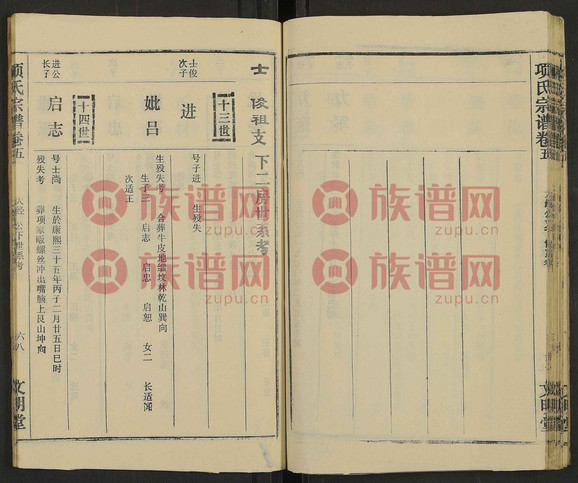 士俊祖支下二房世系考
十三世
士俊
次子
进
号子进 生殁失
妣吕
生殁失考 合葬牛皮地
乾山巽向
生子三 启志 启忠 启恕 女二 长适
次适王
十四世
进公
长子
启志
号士尚 生於康熙三十五年丙子二月廿五日巳时
殁失考 葬项家畈螺丝冲出嘴脑上艮山坤向
项氏宗谱卷五
六八
文明堂
项氏宗谱卷五
文明堂
族谱网
zupu.cn
族谱网
zupu.cn
族谱网
zupu.cn
族谱网
zupu.cn